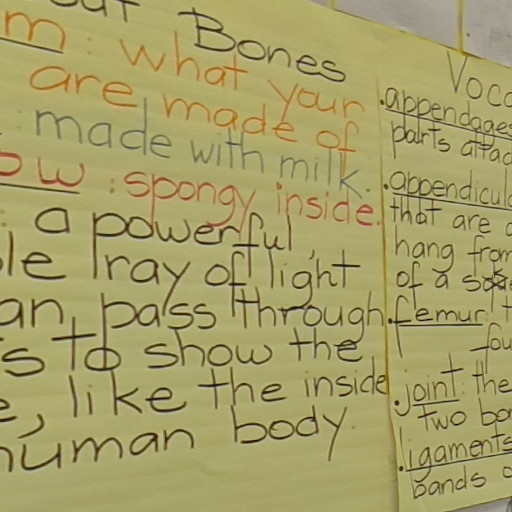 Bones
m: what your
are made of
: made with milk.
ow: spongy inside.
: a powerful,
le ray of light
an pass through
s to show the
e, like the inside
human body.
Voca
.appendages
parts attac
.appendicula
that are a
hang from
of a
.femur: t
fou
.joint: the
two bon
.ligaments
bands o